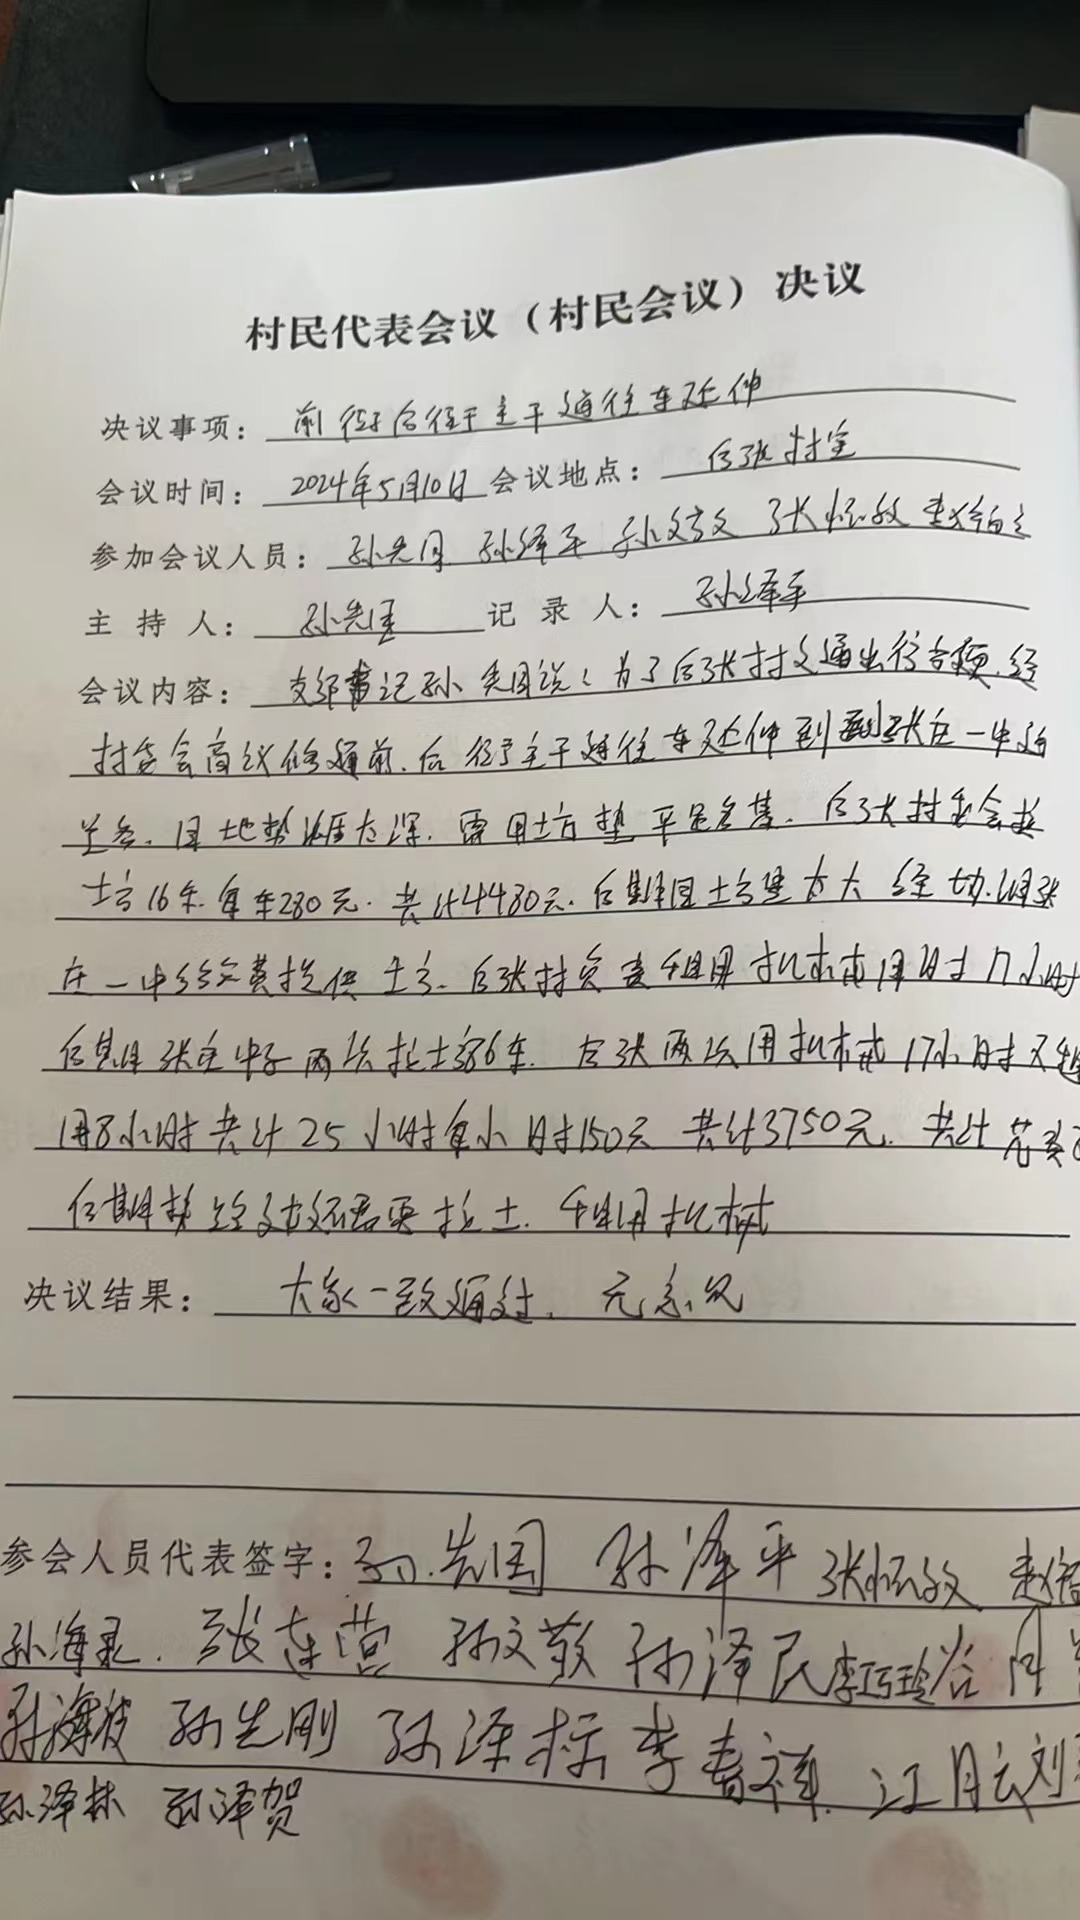 村民代表会议（村民会议）决议
决议事项：前街后街主干道往东延伸
会议时间：2024年5月10日 会议地点：后张村室
参加会议人员：孙先国 孙泽平 孙文敬 张怀敬
主持人：孙先国 记录人：孙泽平
会议内容：支部书记孙先国说：为了后张村交通出行方便.经
村委会商议修通前.后街主干道往东延伸到张庄一中
因地势太深.需用土方垫平.后张村委会拉
土方16车.每车280元.共计4480元.后期因土方量太大 经协调张
庄一中提供土方.后张村负责租用机械用时17小时
后期张庄中学两次拉土386车.后张两次用机械17小时又租
用8小时共计25小时每小时150元 共计3750元.共计
后期拉土.租用机械
决议结果：大家一致通过.无意见
参会人员代表签字：孙先国 孙泽平 张怀敬 赵
孙海 张连营 孙文敬 孙泽民 李巧玲 谷月
孙海波 孙先刚 孙泽标 李春祥 江月云 刘
孙泽林 孙泽贺